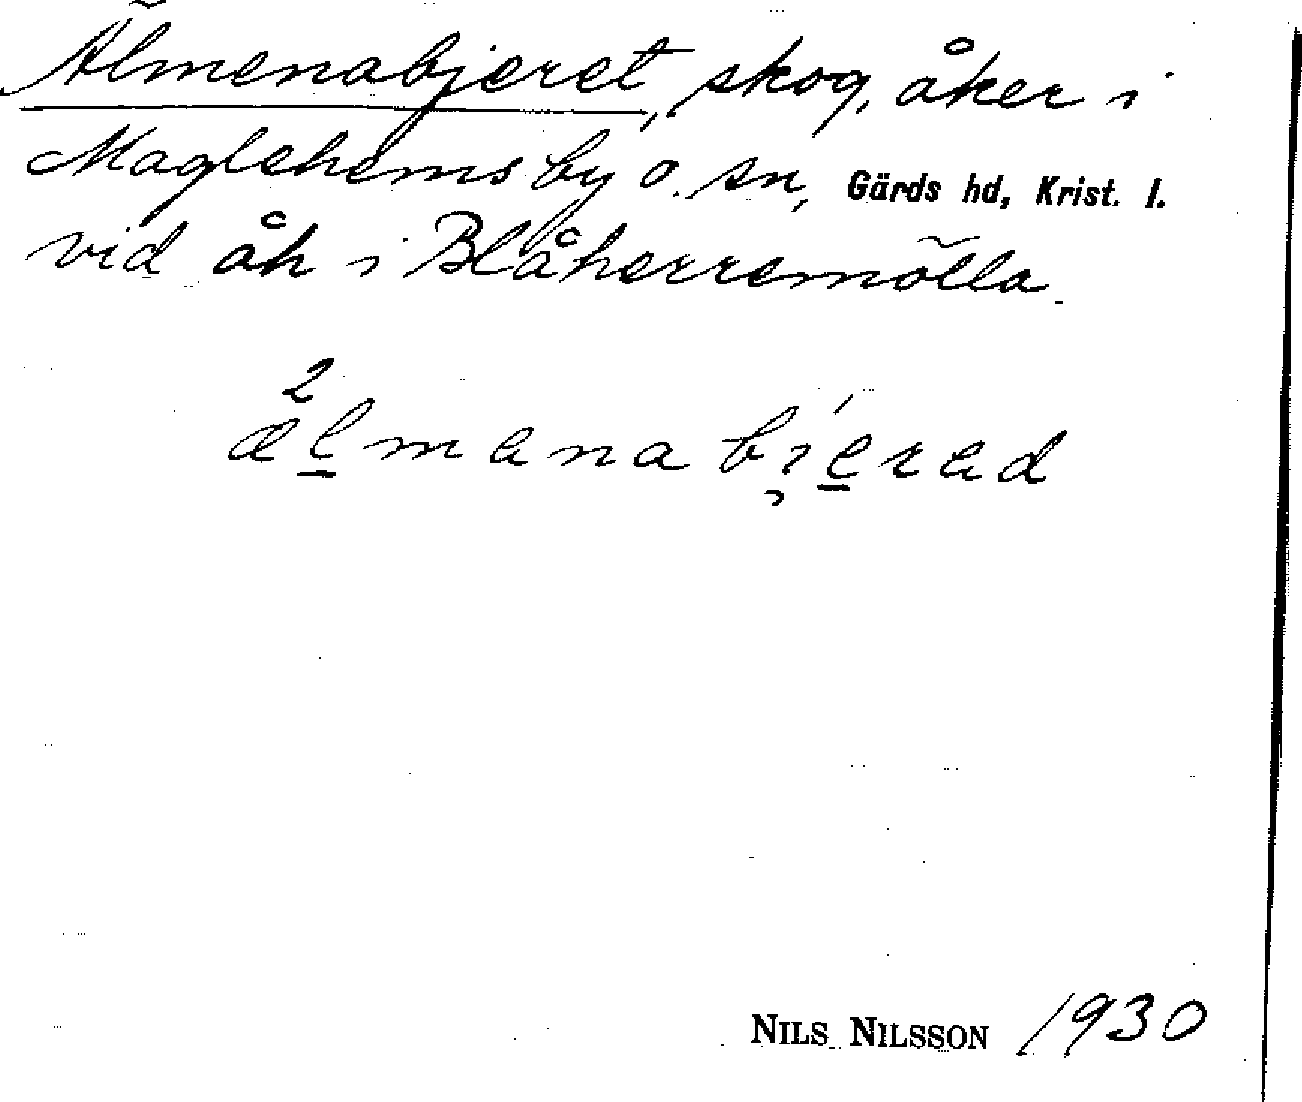 Älmenabjeret, skog, åker i
Maglehems by o. sn, Gärds hd, Krist. l.
vid åh i Blåherremölla.
æ²l̲menabi̯é̲rad
NILS NILSSON 1930